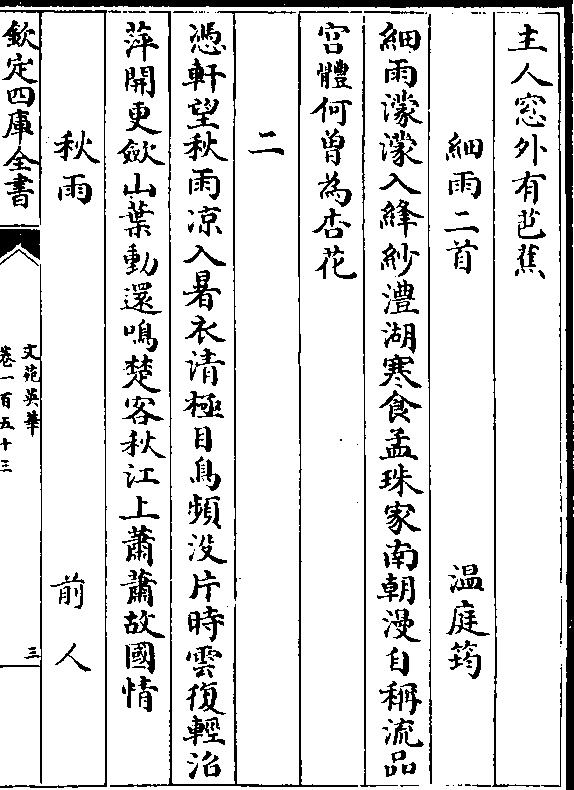 主人窓外有芭蕉
細雨二首 温庭筠
細雨濛濛入絳紗澧湖寒食孟珠家南朝漫自稱流品
宫體何曽為杏花
二
憑軒望秋雨凉入暑衣清極目鳥頻没片時雲復輕沿
萍開更歛山葉動還鳴楚客秋江上蕭蕭故國情
秋雨 前人
欽定四庫全書
文苑英華
卷一百五十三
三